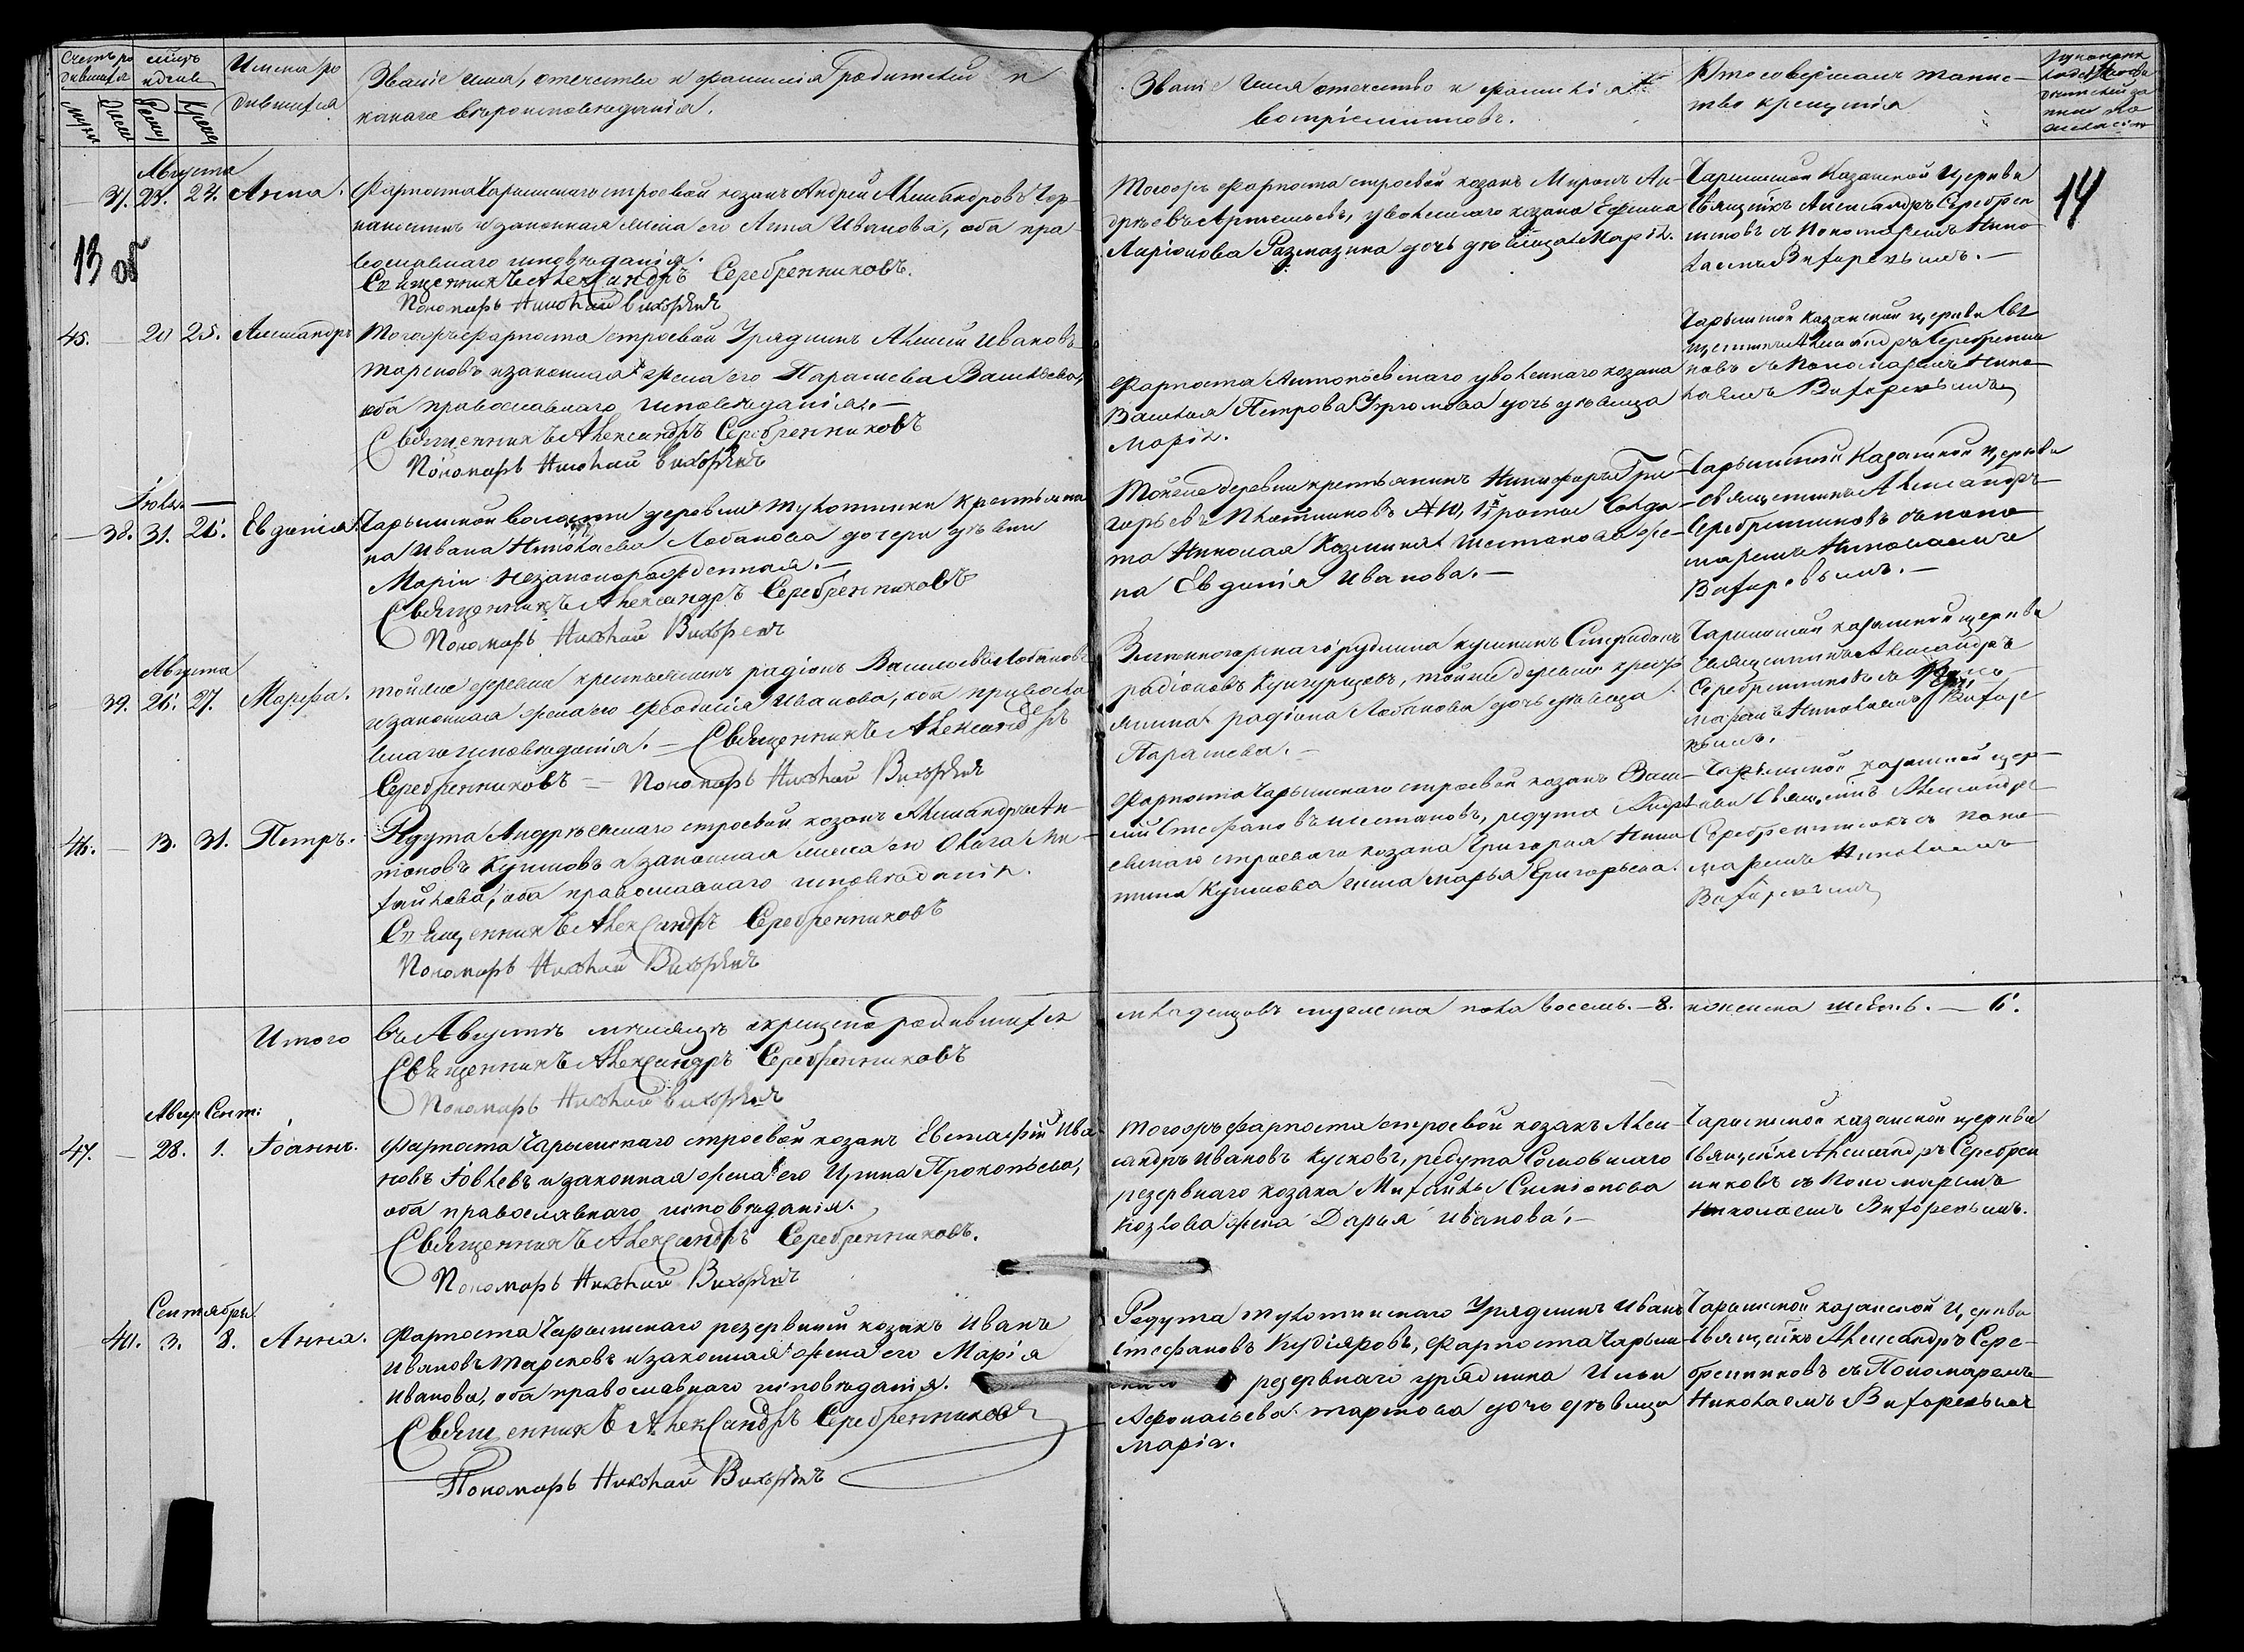 Счетъ ро
дившихся
Муж
Жен
мѣсяцъ
и день
Рожд
Крещ
Имена ро
дившихся
Званіе имя, отечество и фамилія Родителей и
какаго вѣроисповѣданія.
Званіе имя отечество и фамилія
воспріемниковъ.
Кто совершалъ таин-
ство крещенія
14
13 об
Августа
37. 23. 24. Анна.
Форпоста Чарышскаго строевой козакъ Андрей Александровъ
и законная жена его Анна Иванова, оба пра-
вославнаго исповѣданія.
Священникъ Александръ Серебренниковъ.
Пономарь Николай Вихоревъ
Тогожъ форпоста строевой козакъ Миронъ Ан-
дреевъ Артемьевъ, уволеннаго козака Ефима
Ларіонова Размазина дочь дѣвица Марія.
Чарышской Казанской Церкви
Священикъ Александръ Серебрен
никовъ съ Пономаремъ Нико
лаемъ Вихоревымъ.—
45. — 20 25. Александръ
Тогожъ форпоста строевой Урядникъ Алексей Ивановъ
Тарсковъ и законная жена его Параскева Васильева,
оба православнаго исповѣданія.—
Священникъ Александръ Серебренниковъ
Пономарь Николай Вихоревъ
Форпоста Антоньевскаго уволеннаго козака
Василья Петрова дочь дѣвица
Марія.
Чарышской Казанской церкви Свя
щенникъ Александръ Серебренни
ковъ съ Пономаремъ Нико
лаемъ Вихоревымъ
Іюля —
— 38. 31. 26. Евдокія
Чарышской волости деревни Тулотинки крестьяни
на Ивана Николаева Лобанова дочери дѣвки
Маріи незаконорожденная.—
Священникъ Александръ Серебренниковъ
Пономарь Николай Вихоревъ
Тойже деревни крестьянинъ Никифоръ Гри-
горьевъ Плотниковъ № 10, роты Солда-
та Николая Козмина Шестакова же-
на Евдокія Иванова.—
Чарышской Казанской Церкви
Священникъ Александръ
Серебренниковъ съ поно
маремъ Николаемъ
Вихоревымъ.—
Августа
39. 26. 27. Марфа.
тойже деревни крестьянинъ Радіонъ Васильевъ Лобановъ
и законная жена его Феодосія Иванова, оба правосла
внаго исповѣданія.— Священникъ Александръ
Серебренниковъ — Пономарь Николай Вихоревъ
Змеиногорскаго рудника Спиридонъ
Радіоновъ Кунгурцовъ, тойже деревни кресть
янина Радіона Лобанова дочь дѣвица
Параскева.—
Чарышской казанской церкви
Священникъ Александръ
Серебренниковъ съ Поно
маремъ Николаемъ Вихоре
вымъ.
46. — 13. 31. Петръ.
Редута Андреевскаго строевой козакъ Александръ Ан-
тоновъ Кузнецовъ и законная жена его Ольга Ми-
хайлова, оба православнаго исповѣданія.
Священникъ Александръ Серебренниковъ
Пономарь Николай Вихоревъ
Форпоста Чарышскаго строевой козакъ Васи-
лій Стефановъ Шестаковъ, редута Андре
евскаго строеваго козака Григорья Ники
тина Кузнецова жена Марья Григорьева.
Чарышской казанской цер-
кви Священикъ Александръ
Серебренниковъ съ Поно
маремъ Николаемъ
Вихоревымъ
Итого въ Августѣ мѣсяцѣ окрещено родившихся
младенцовъ мужеска пола восемь.—8. и женска шесть.— 6.
Священникъ Александръ Серебренниковъ
Пономарь Николай Вихоревъ
Авгус Сент:
47. — 28. 1. Іоаннъ.
Форпоста Чарышскаго строевой козакъ Евстафій Ива-
новъ Іовлевъ и законная жена его Ирина Прокопьева,
оба православнаго исповѣданія.
Священникъ Александръ Серебренниковъ.
Пономарь Николай Вихоревъ
тогожъ форпоста строевой козакъ Алек-
сандръ Ивановъ Кусковъ, редута Сосновскаго
резервнаго козака Михайлы Симіонова
Козлова жена Дарья Иванова.—
Чарышской казанской церкви
Священикъ Александръ Серебрен
никовъ съ Пономаремъ
Николаемъ Вихоревымъ.
Сентября
— 40. 3. 8. Анна.
Форпоста Чарышскаго резервный козакъ Иванъ
Ивановъ Тарсковъ и законная жена его Марія
Иванова, оба православнаго исповѣданія.
Священникъ Александръ Серебренниковъ
Пономарь Николай Вихоревъ
Редута Тулотинскаго Урядникъ Иванъ
Стефановъ Кудіяровъ, форпоста Чарыш-
скаго резервнаго урядника Ильи
Афонасьева Тарскова дочь дѣвица
Марія.
Чарышской казанской Церкви
Священикъ Александръ Сере-
бренниковъ съ Пономаремъ
Николаемъ Вихоревымъ